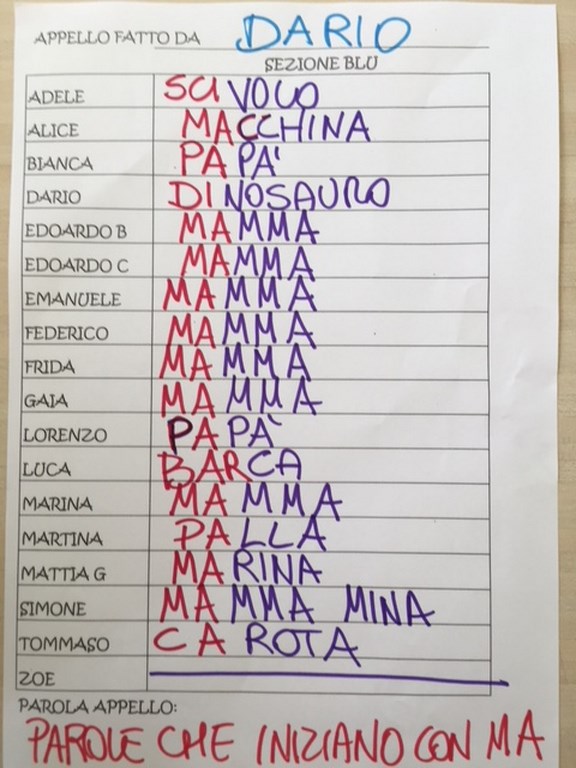 APPELLO FATTO DA DARIO
SEZIONE BLU
ADELE SCIVOLO
ALICE MACCHINA
BIANCA PAPA'
DARIO DINOSAURO
EDOARDO B MAMMA
EDOARDO C MAMMA
EMANUELE MAMMA
FEDERICO MAMMA
FRIDA MAMMA
GAIA MAMMA
LORENZO PAPÀ
LUCA BARCA
MARINA MAMMA
MARTINA PALLA
MATTIA G MARINA
SIMONE MAMMA MINA
TOMMASO CAROTA
ZOE
PAROLA APPELLO:
PAROLE CHE INIZIANO CON MA